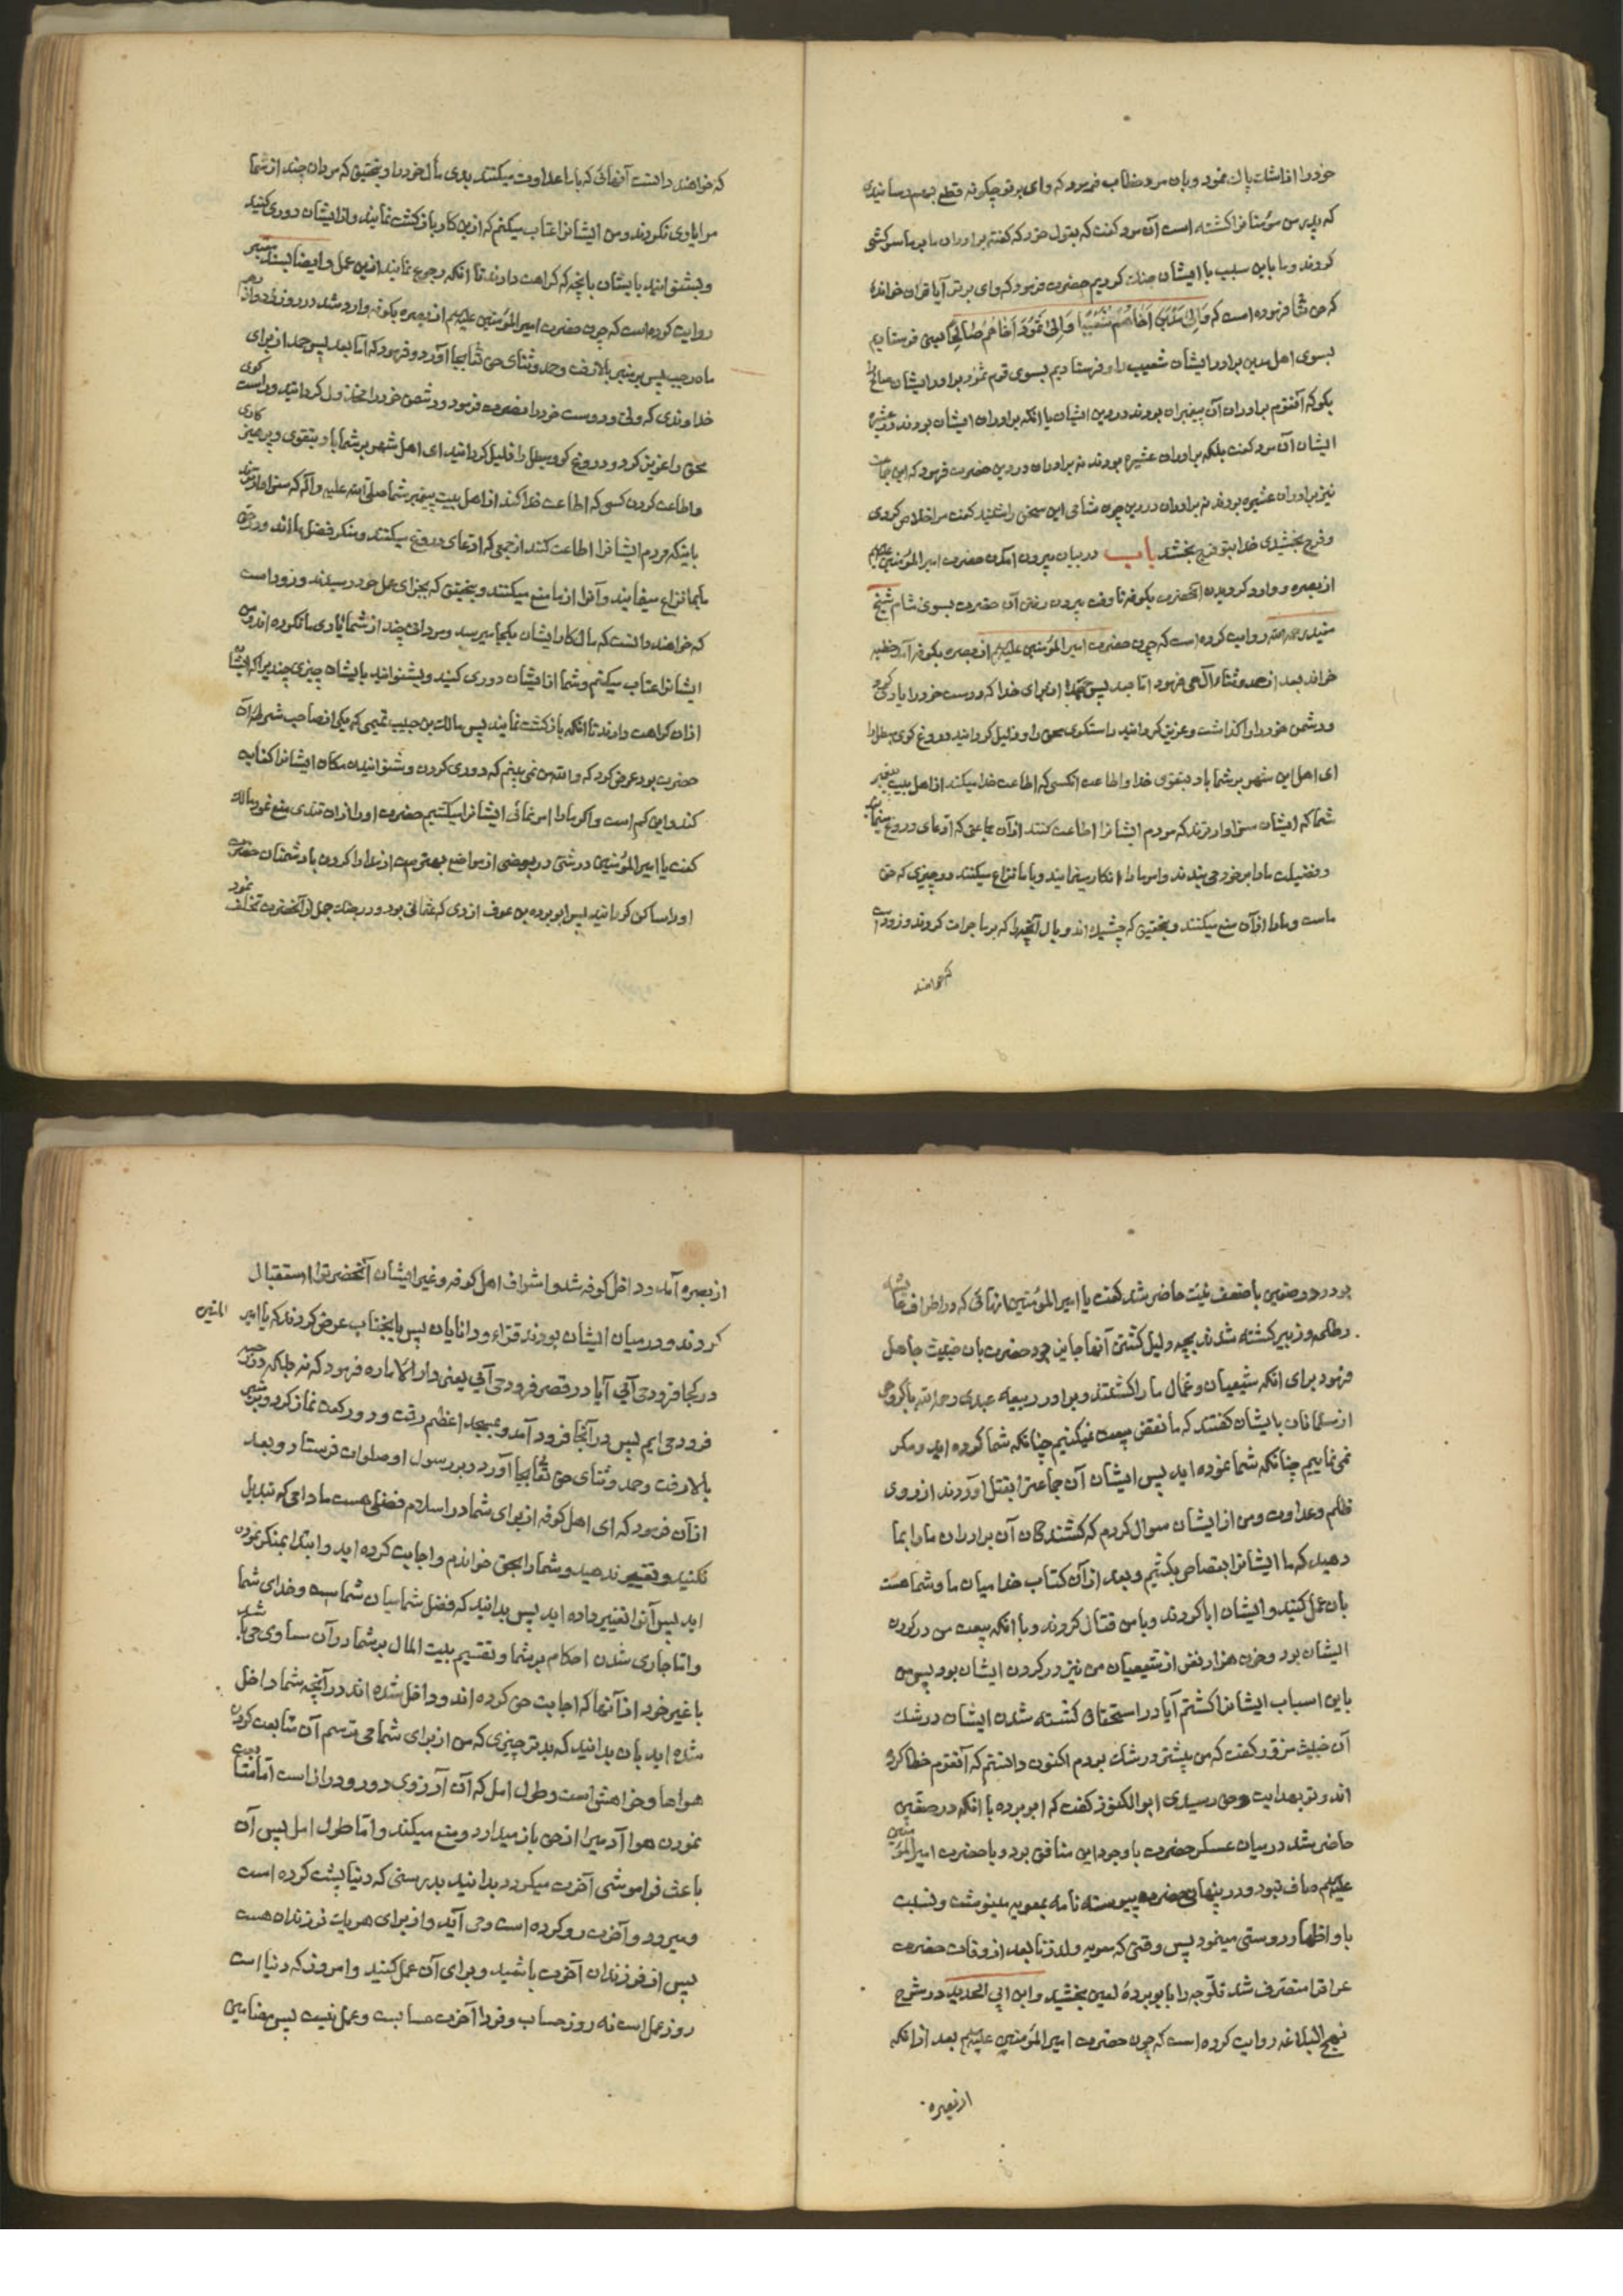 خود را از اشک پاک نمود و بان مرد خطاب فرمود که وای بر تو چکونه قطع بهم رسانیدی
که پدر من مؤمنانرا کشته است آن مرد کفت که بقول خود که کفته برادران ما بر ما سرکشی
کردند و ما باین سبب با ایشان جنک کردیم حضرت فرمود که وای بر تو آیا قران خوانده
که حق تعالی فرموده است که وَاِلی مَدْیَنَ اَخاهُمْ شُعَیْباً وَاِلی ثَمُودَ اَخاهُمْ صالِحاً یعنی فرستادیم
بسوی اهل مدین برادر ایشان شعیب را و فرستادیم بسوی قوم ثمود برادر ایشان صالح را
بکو که آنقوم برادران آن پیغبران بودند در دین ایشان یا انکه برادران ایشان بودند در عشیره
ایشان آن مرد کفت بلکه برادران عشیره بودند نه برادران در دین حضرت فرمود که این جماعت
نیز برادران عشیره بودند نه برادران در دین چون شامی این سخن را شنید کفت مرا خلاص کردی
و فرج بخشیدی خدا بتو فرج بخشد باب در بیان بیرون آمدن حضرت امیر المؤمنین علیه السلم
از بصره و وارد کردیدن آنحضرت بکوفه تا وقت بیرون رفتن آن حضرت بسوی شام شیخ
مفید رحمه الله روایت کرده است که چون حضرت امیر المؤمنین علیه السلم از بصره بکوفه آمد خطبه
خواند بعد از حمد و ثناء الهی فرمود اما بعد پس حمد از برای خدا که دوست خود را یاری کرد
و دشمن خود را واکذاشت و عزیز کردانید راستکوی محق را و ذلیل کردانید دروغ کوی مبطل را
ای اهل این شهر بر شما باد بتقوی خدا و اطاعت انکسی که اطاعت خدا میکند از اهل بیت پیغمبر
شما که ایشان سزاوارترند که مردم ایشانرا اطاعت کنند از آن جماعتی که ادعای دروغ مینمایند
و فضیلت ما را بر خود می بندند و امر ما را انکار مینمایند و با ما نزاع میکنند در چیزی که حق
ماست و ما را از آن منع میکنند و بتحقیق که چشیده اند وبال آنچه را که بر ما جرات کردند و زود است
که خواهند
که خواهند دانست آنهائی که با ما عداوت میکنند بدی مآل خود را و بتحقیق که مردان چند از شما
مرا یاوری نکردند و من ایشانرا عتاب میکنم که از این کار بازکشت نمایند و از ایشان دوری کنید
و بشنوانید بایشان بآنچه که کراهت دارند تا انکه رجوع نمایند ازین عمل و ایضا بسند معتبر
روایت کرده است که چون حضرت امیر المؤمنین علیه السلم از بصره بکوفه وارد شد در روز دوازدهم
ماه رجب پس بر منبر بالا رفت و حمد و ثنای حق تعالی بجا آورد و فرمود که اما بعد پس حمد از برای
خداوندی که ولی و دوست خود را نصرت فرمود و دشمن خود را مخذول کردانید و راست کوی
محق را عزیز کرد و دروغ کو و مبطل را ذلیل کردانید ای اهل شهر بر شما باد بتقوی و پرهیز کاری
و اطاعت کردن کسی که اطاعت خدا کند از اهل بیت پیغمبر شما صلی الله علیه و آله که سزاوارترند
باینکه مردم ایشانرا اطاعت کنند از جمعی که ادعای دروغ میکنند و منکر فضل ما اند و در حق
ما بما نزاع مینمایند و آنرا از ما منع میکنند و بتحقیق که بجزای عمل خود رسیدند و زود است
که خواهند دانست که مآل کار ایشان بکجا میرسد و مردانی چند از شما یاری ما نکرده اند و من
ایشانرا عتاب میکنم و شما از ایشان دوری کنید و بشنوانید بایشان چیزی چند برا که ایشان
ازان کراهت دارند تا انکه بازکشت نمایند پس مالک بن حبیب تمیمی که یکی از صاحب شرطه آن
حضرت بود عرض کرد که والله من نمی بینم که دوری کردن و شنوانیدن مکاره ایشانرا کفایت
کند و این کم است و اکر ما را امر نمائی ایشانرا میکشیم حضرت او را ازان تندی منع نمود مالک
کفت یا امیر المؤمنین درشتی در بعضی از مواضع بهتر است از مدارا کردن با دشمنان حضرت
او را ساکن کردانید پس ابو برده بن عوف ازدی که عثمانی بود و در جنک جمل از آنحضرت تخلف نمود
بود در صفین با ضعف نیت حاضر شد کفت یا امیر المؤمنین ازنهائی که در اطراف عایشه
و طلحه و زبیر کشته شدند بچه دلیل کشتن آنها جایز بود حضرت بان خبیث جاهل
فرمود برای انکه شیعیان و عمال ما را کشتند و برادر ربیعه عبدی رحمه الله با کروهی
از مسلمانان بایشان کفتند که ما نقض بیعت نمیکنیم چنانکه شما کرده اید و مکر
نمی نماییم چنانکه شما نموده اید پس ایشان آن جماعترا بقتل آوردند از روی
ظلم و عداوت و من از ایشان سوال کردم که کشندکان آن برادران ما را بما
دهید که ما ایشانرا بقصاص بکشیم و بعد از آن کتاب خدا میان ما و شما هست
بان عمل کنید و ایشان ابا کردند و با من قتال کردند و با انکه بیعت من در کردن
ایشان بود و خون هزار نفس از شیعیان من نیز در کردن ایشان بود پس من
باین اسباب ایشانرا کشتم آیا در استحقاق کشته شدن ایشان در شک
آن خبیث مزور کفت که من پیشتر در شک بودم اکنون دانستم که آنقوم خطا کرده
اند و تو بهدایت و حق رسیدی ابو الکنود کفت که ابو برده با انکه در صفین
حاضر شد در میان عسکر حضرت با وجود این منافق بود و با حضرت امیر المؤمنین
علیه السلم صاف نبود و در پنهانی حضرت پیوسته نامه بمعویه مینوشت و نسبت
باو اظهار دوستی مینمود پس وقتی که معویه ولد زنا بعد از وفات حضرت
عراقرا متصرف شد فلوجه را بابو بردهٔ لعین بخشید و ابن ابی الحدید در شرح
نهج البلاغه روایت کرده است که چون حضرت امیر المؤمنین علیه السلم بعد از انکه
از بصره
از بصره آمد و داخل کوفه شد و اشراف اهل کوفه و غیر ایشان آنحضرترا استقبال
کردند و در میان ایشان بودند قراء و دانایان پس بانجناب عرض کردند که یا امیر المؤمنین
در کجا فرود می آئی آیا در قصر فرود می آئی یعنی دار الاماره فرمود که نه بلکه در رحبه
فرود می ایم پس در آنجا فرود آمد و بمسجد اعظم رفت و دو رکعت نماز کرد و بر منبر
بالا رفت و حمد و ثنای حق تعالی بجا آورد و بر رسول او صلوات فرستاد و بعد
ازآن فرمود که ای اهل کوفه از برای شما در اسلام فضلی هست مادامی که تبدیل
نکنید و تغییر ندهید و شما را بحق خواندم و اجابت کرده اید و ابتدا بمنکر نموده
اید پس آنرا تغییر داده اید پس بدانید که فضل شما میان شماست و خدای شما
و اما جاری شدن احکام بر شما و تقسیم بیت المال بر شما در آن مساوی می باشید
با غیر خود از آنها که اجابت حق کرده اند و داخل شده اند در آنچه شما داخل
شده اید بان بدانید که بدتر چیزی که من از برای شما می ترسم آن متابعت کردن
هواها و خواهش است و طول امل که آن آرزوی دور و دراز است اما متابعت
نمودن هوا آدمیرا از حق باز میدارد و منع میکند و اما طول امل پس آن
باعث فراموشی آخرت میکردد بدانید بدرستی که دنیا پشت کرده است
و میرود و آخرت رو کرده است و می آید و از برای هر یک فرزندان هست
پس از فرزندان آخرت باشید و برای آن عمل کنید و امروز که دنیا است
روز عمل است نه روز حساب و فردا آخرت حسابست و عمل نیست پس مضامین